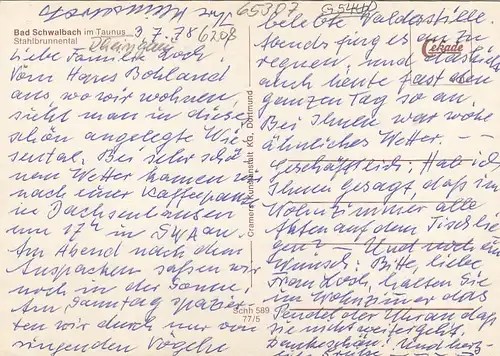 65307
G5440
Bad Schwalbach im Taunus
Stahlbrunnental
3.7.78
6208
Liebe Familie Koch!
Vom Haus Bohland
aus, wo wir wohnen,
sieht man in dieses
schön angelegte Wie-
sental. Bei sehr schö-
nem Wetter kamen wir
nach einer Kaffeepause
in Dachsenhausen
um 17 h in SWA an.
Am Abend nach dem
Auspacken saßen wir
noch in der Sonne.
Am Samstag spazier-
ten wir durch nur von
singenden Vögeln
Cramers Kunstanstalt KG, Dortmund
Schh 589
77/5
Cekade
belebte Waldesstille.
Abends fing es an zu
regnen, und
auch heute fast den
ganzen Tag so an.
Bei Ihnen war wohl
ähnliches Wetter --
Geschäftlich: Hab ich
Ihnen gesagt, daß im
Wohnzimmer alle
Akten auf dem Tisch lie-
gen? - Und noch ein
Wunsch: Bitte, liebe
Frau Koch, halten Sie
im Wohnzimmer das
Pendel der Uhr an, daß
sie nicht weitergeht.
Dankeschön! Und herz-